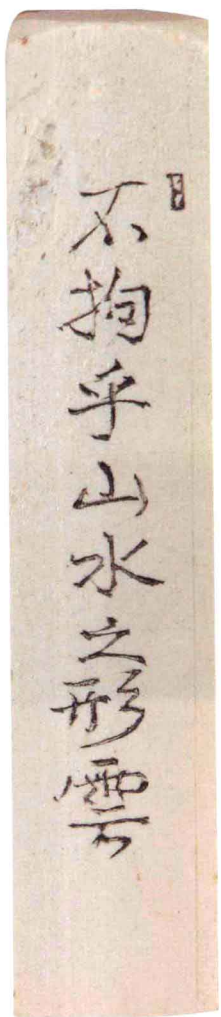 不拘乎山水之形雲